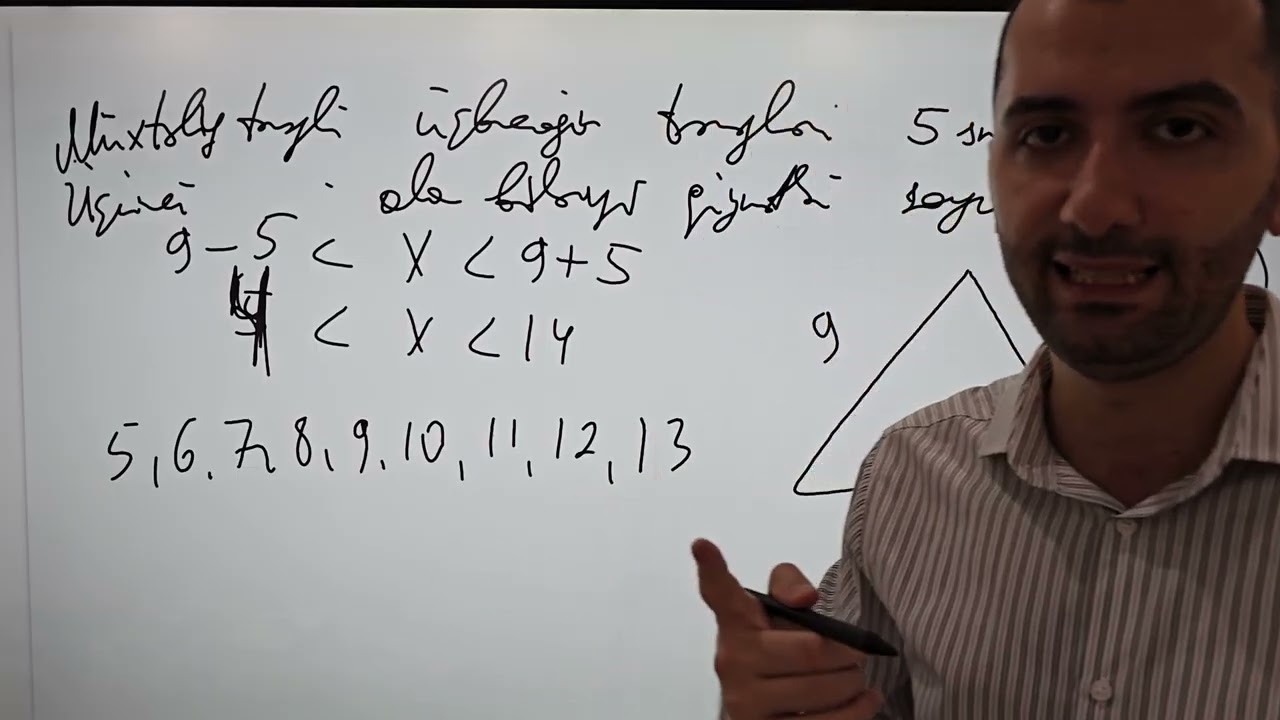 Müxtəlif tərəfli üçbucağın tərəfləri 5 sm
Üçüncü ola biləcəyi qiymətləri sayı
9 - 5 < X < 9 + 5
4 < X < 14
9
5, 6, 7, 8, 9, 10, 11, 12, 13